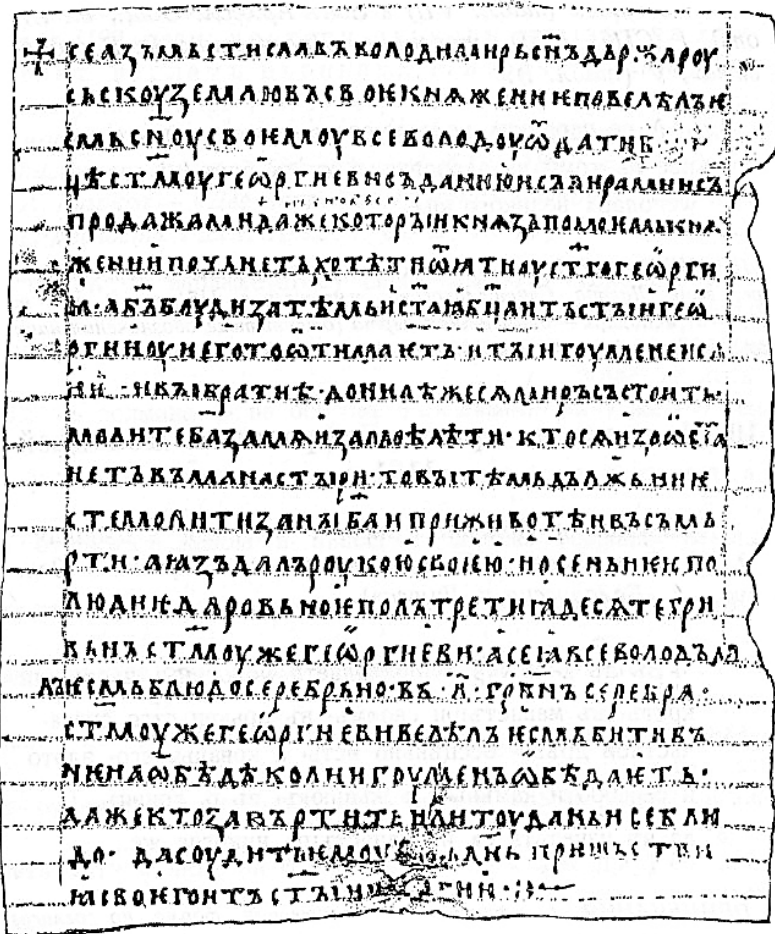 ✢ се азъ мьстиславъ володимирь сн҃ъ дьржа роу
сьскоу землю въ своѥ кнѧжениѥ повелѣлъ ѥ
смь сн҃оу своѥмоу всеволодоу ѿдати
цѣ ст҃моу геѡргиеви съ данию и съ вирами и съ
продажами даже которыи кнѧзь по моѥмь кнѧ
жении почьнеть хотѣти ѿꙗти оу ст҃го геѡрги
ꙗ · а бъ҃ боуди за тѣмь и ст҃аꙗ бц҃а и тъ ст҃ыи геѡ
ргии оу него то ѿимаѥть · и ты игоумене иса
иѥ · и вы братиѣ · донелѣ же сѧ миръ състоить ·
молите ба҃ за мѧ и за моѣ дѣти · кто сѧ изоѡста
неть въ манастыри · то вы тѣмь дължьни ѥ
сте молити за ны ба҃ и при животѣ и въ съмь
рти · а ꙗзъ далъ роукою своѥю · и осеньнѥѥ по
людиѥ даровьноѥ полътретиꙗдесѧте гри
вьнъ ст҃моу же геѡргиеви · а се ꙗ всеволодъ да
лъ ѥсмь блюдо серебрьно · въ · л҃ · грв҃нъ серебра ·
ст҃моу же геѡргиеви велѣлъ ѥсмь бити въ
нѥ на ѡбѣдѣ коли игоуменъ ѡбѣдаѥть ·
даже кто запъртить или тоу дань и се блю
до · да соудить ѥмоу днь пришьстви
ꙗ своѥго и тъ ст҃ыи